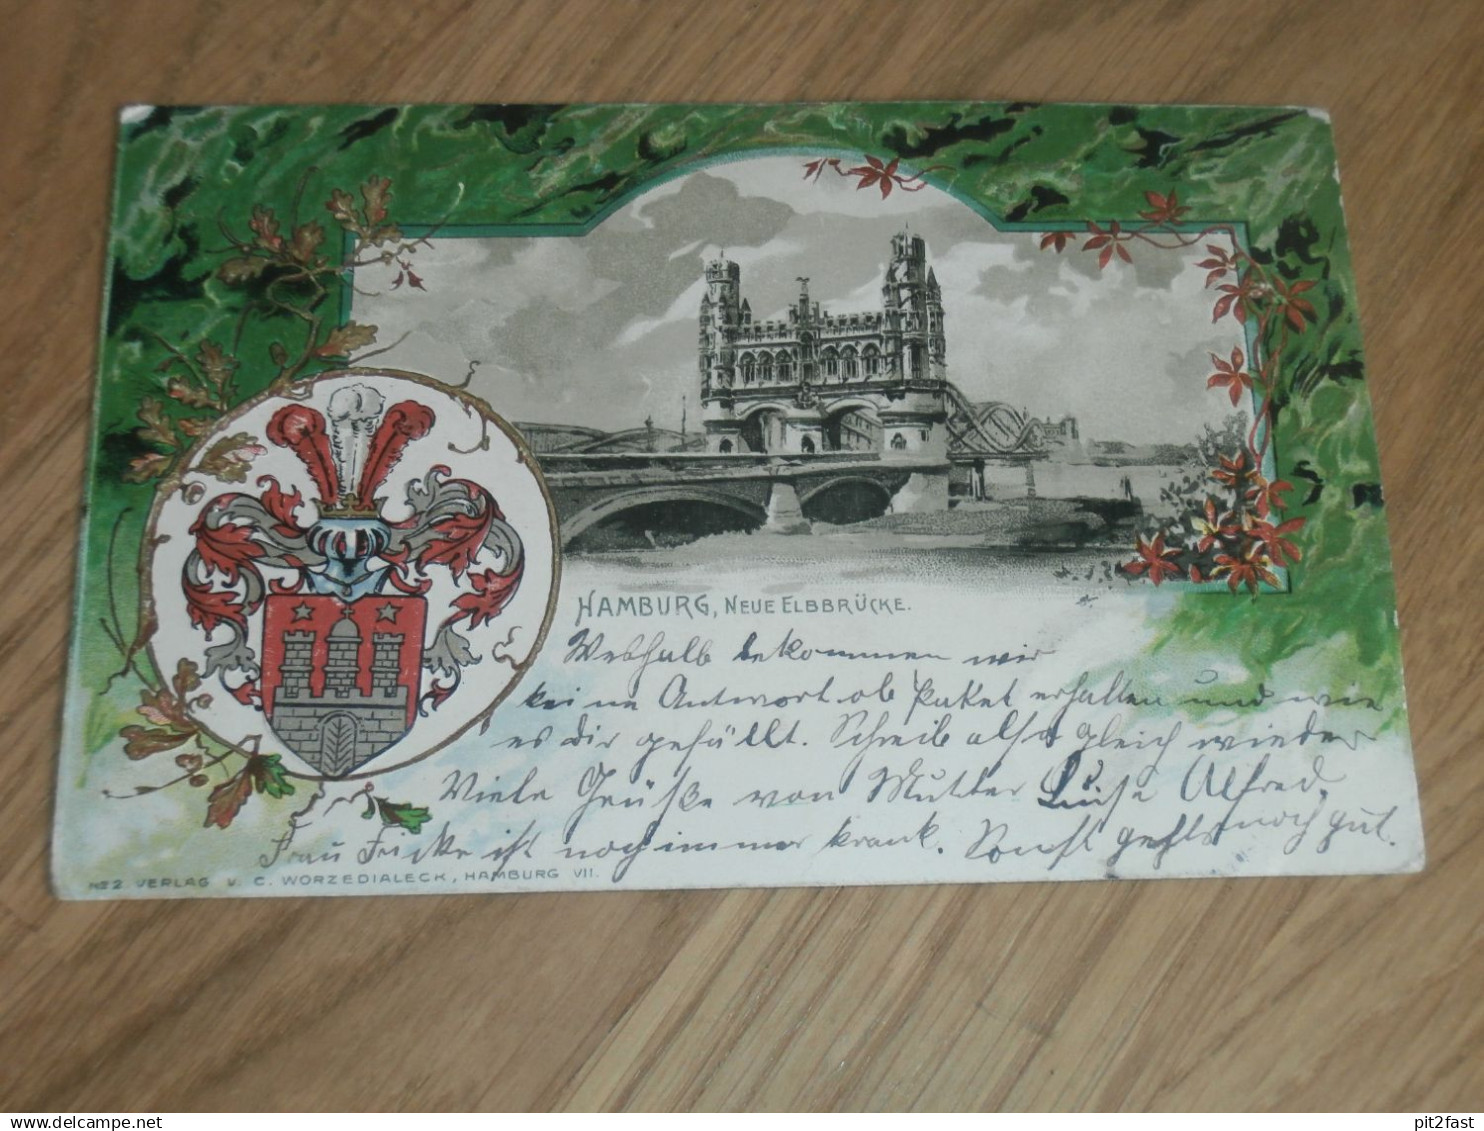 HAMBURG, NEUE ELBBRÜCKE.
Weshalb bekommen wir
keine Antwort ob Paket erhalten und wie
es dir gefällt. Schreib also gleich wieder
Viele Grüße von Mutter Luise Alfred.
Frau Fricke ist noch immer krank. Sonst gehts noch gut.
No 2 VERLAG V. C. WORZEDIALECK, HAMBURG VII.
© www.delcampe.net
pit2fast